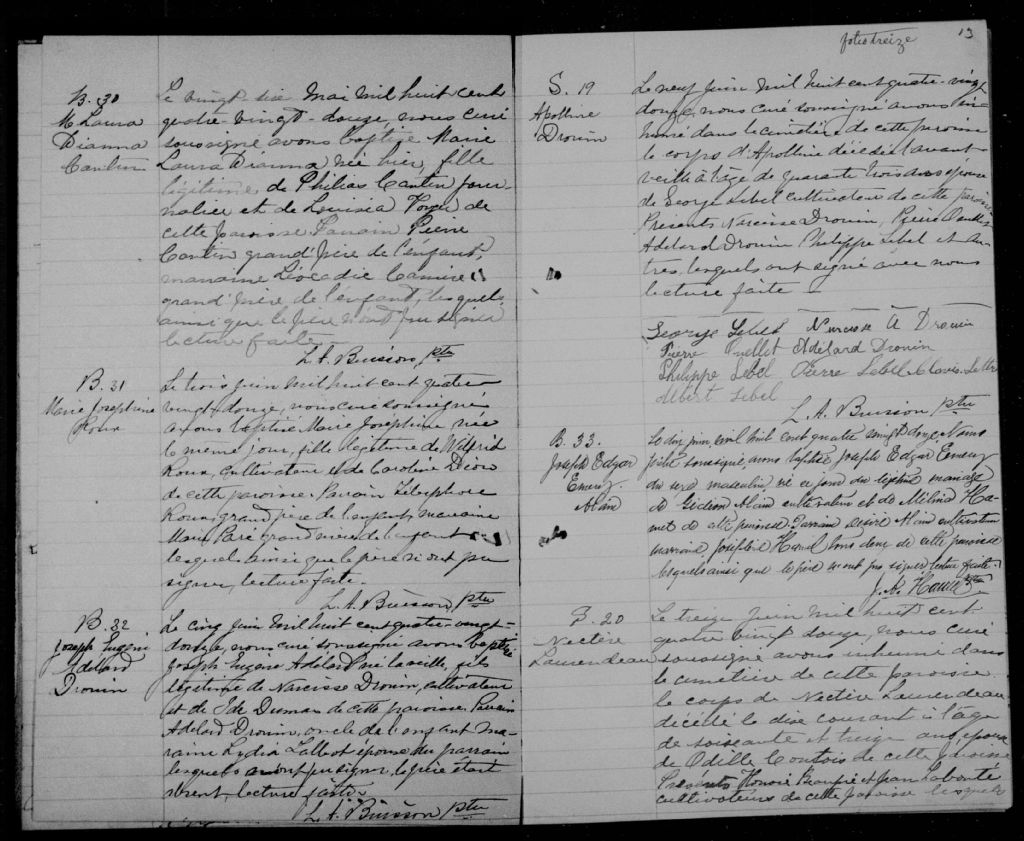 B. 30
M. Laura
Dianna
Cantin
Le vingt-six Mai mil huit cent
quatre-vingt-douze, nous curé
soussigné avons baptisé Marie
Laura Dianna née hier, fille
légitime de Philias Cantin jour-
nalier et de Louisia de
cette paroisse Parrain Pierre
Cantin grand'père de l'enfant,
marraine Léocadie Camiré
grand'mère de l'enfant, lesquels
ainsi que le père n'ont pu signer
lecture faite.
L. A. Buisson ptre
B. 31
Marie Josephine
Roux
Le trois juin mil huit cent quatre
vingt-douze, nous curé soussigné
avons baptisé Marie Joséphine née
le même jour, fille légitime de Wilfrid
Roux, cultivateur et de Caroline
de cette paroisse. Parrain Telesphore
Roux, grand'père de l'enfant, marraine
Marie Paré grand'mère de l'enfant
lesquels ainsi que le père n'ont pu
signer, lecture faite.
L. A. Buisson ptre
B. 32
Joseph Eugène
Adelard
Drouin
Le cinq juin mil huit cent quatre-vingt-
douze, nous curé soussigné avons baptisé
Joseph Eugène Adélard né la veille, fils
légitime de Narcisse Drouin, cultivateur
et de Ida Dumas de cette paroisse. Parrain
Adelard Drouin, oncle de l'enfant ma-
raine Lydia Talbot épouse du parrain
lesquels n'ont pu signer, le père étant
absent, lecture faite.
L. A. Buisson ptre
folio treize
13
S. 19
Apolline
Drouin
Le neuf juin mil huit cent quatre-vingt
douze, nous curé soussigné avons in-
humé dans le cimetière de cette paroisse
le corps d'Apolline décédée l'avant-
veille à l'âge de quarante trois ans épouse
de George Lebel cultivateur de cette paroisse
Présents Narcisse Drouin, Pierre Ouellet
Adelard Drouin Philippe Lebel et au-
tres, lesquels ont signé avec nous
lecture faite
George Lebel Narcisse A Drouin
Pierre Ouellet Adélard Drouin
Philippe Lebel Pierre Lebel
Albert Lebel
L. A. Buisson ptre
B. 33.
Joseph Edgar
Emery
Alain
Le dix juin, mil huit cent quatre vingt douze Nous
prêtre soussigné, avons baptisé Joseph Edgar Emery
du sexe masculin né ce jour du légitime mariage
de Gédéon Alain cultivateur et de Mélina Ha-
mel de cette paroisse. Parrain Désiré Alain cultivateur
marraine Hamel tous deux de cette paroisse
lesquels ainsi que le père n'ont pu signer lecture faite.
J. A. Hamel Ptre
S. 20
Nectère
Laurendeau
Le treize juin mil huit cent
quatre vingt douze, nous curé
soussigné avons inhumé dans
le cimetière de cette paroisse
le corps de Nectère Laurendeau
décédé le dix courant à l'âge
de soixante et treize ans, époux
de Odille Coutois de cette paroisse
Présents Honoré Beaupré et Jean Labonté
cultivateurs de cette paroisse lesquels